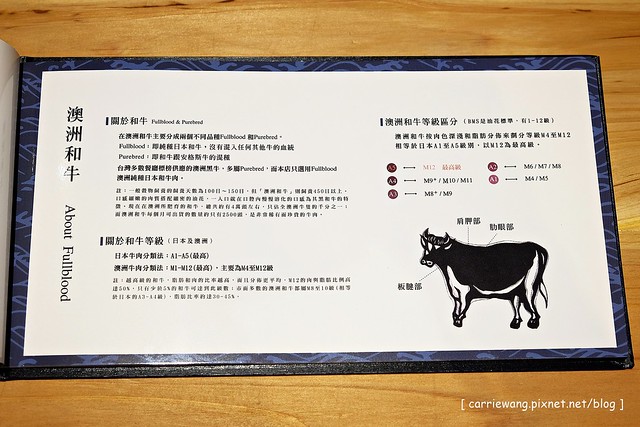 澳洲和牛 About Fullblood
關於和牛 Fullblood & Purebred
在澳洲和牛主要分成兩個不同品種Fullblood 和Purebred,
Fullblood:即純種日本和牛,沒有混入任何其他牛的血統
Purebred:即和牛跟安格斯牛的混種
台灣多數餐廳標榜供應的澳洲黑牛,多屬Purebred,而本店只選用Fullblood
澳洲純種日本和牛肉。
註:一般穀物飼養的飼養天數為100日~150日,但「澳洲和牛」則飼養450日以上,
關於和牛等級 (日本及澳洲)
日本牛肉分類法:A1-A5(最高)
澳洲牛肉分類法:M1-M12(最高),主要為M4至M12級
澳洲和牛等級區分 (BMS是油花標準,有1-12級)
澳洲和牛按肉色深淺和脂肪分佈來劃分等級M4至M12
相等於日本A1至A5級別,以M12為最高級。
A5 ⟷ M12 最高級
A4 ⟷ M9+ / M10 / M11
A3 ⟷ M8+ / M9
A2 ⟷ M6 / M7 / M8
A1 ⟷ M4 / M5
肩胛部
肋眼部
板腱部
[ carriewang.pixnet.net/blog ]